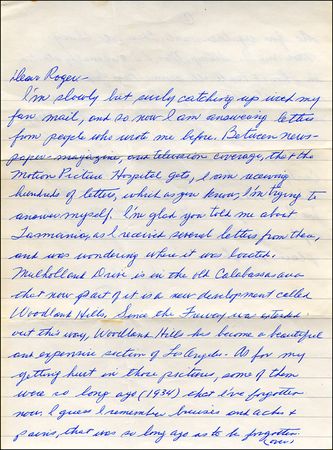 Dear Roger-
I'm slowly but surely catching up with my
fan mail, and so now I am answering letters
from people who wrote me before. Between news-
paper-magizine, and television coverage, that the
Motion Picture Hospital gets, I am receiving
hundreds of letters, which as you know, I'm trying to
answer myself. I'm glad you told me about
Tasmania, as I received several letters from there,
and was wondering where it was located.
Mulholland Drive is in the old Calabassas area
that now part of it is a new development called
Woodland Hills. Since the Freeway was extended
out this way, Woodland Hills has become a beautiful
and expensive section of Los Angeles. As for my
getting hurt in those pictures, some of them
were so long ago (1934) that I've forgotten
now. I guess I remember bruises and aches &
pains, that was so long ago as to be forgotten.
(over)